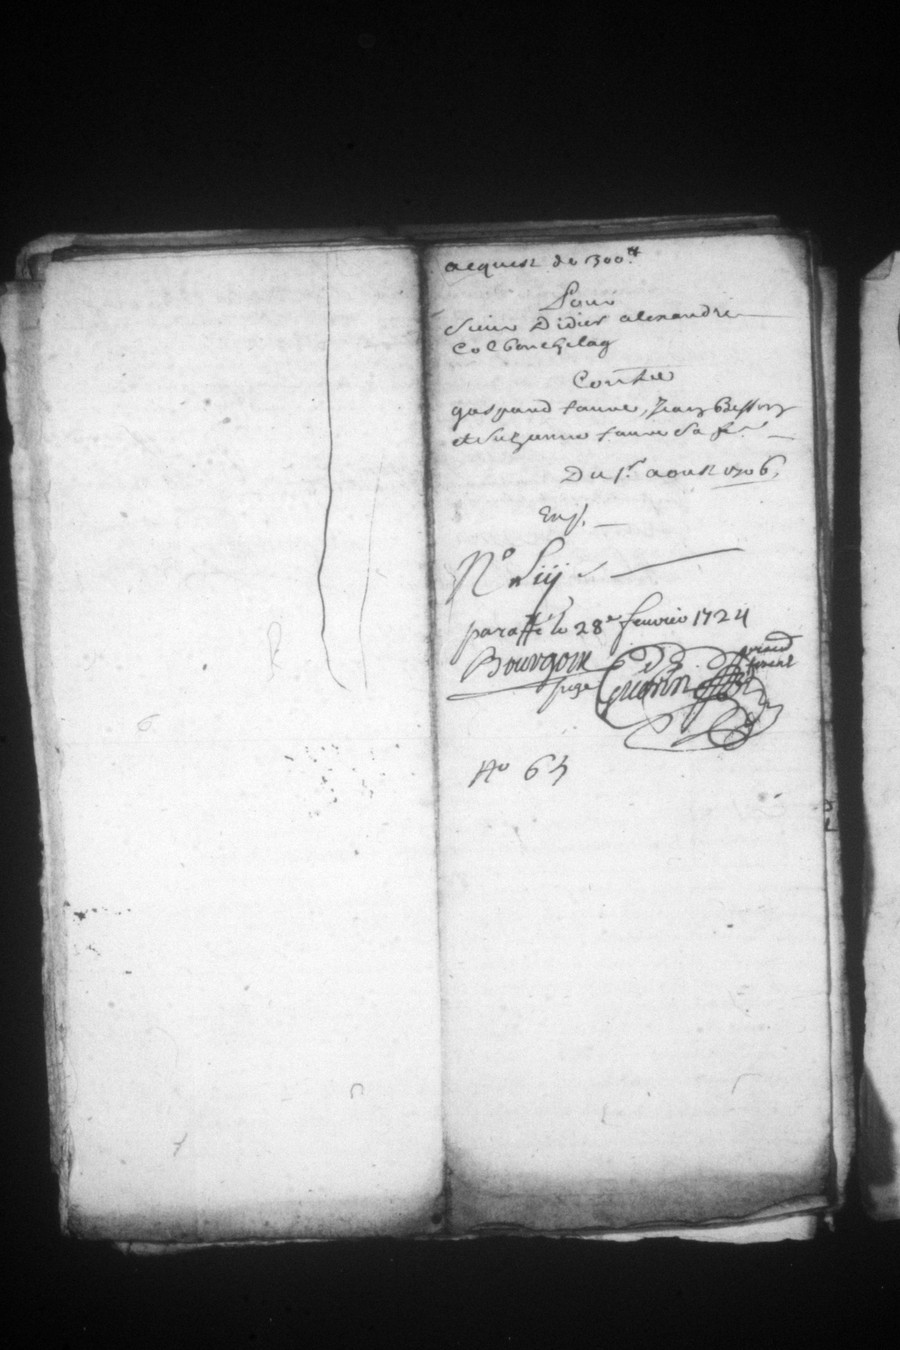 acquest de 300.tt
Pour
Sieur Didier alexandre
Colbonchelag
Contre
gaspard faure, Jean Besson
et Suzanne faure sa fe.
Du 1r. aoust 1706.
Enf.
No Liij
paraffé le 28e feuvrier 1724
Bourgoin
juge Guerin
No 65
6